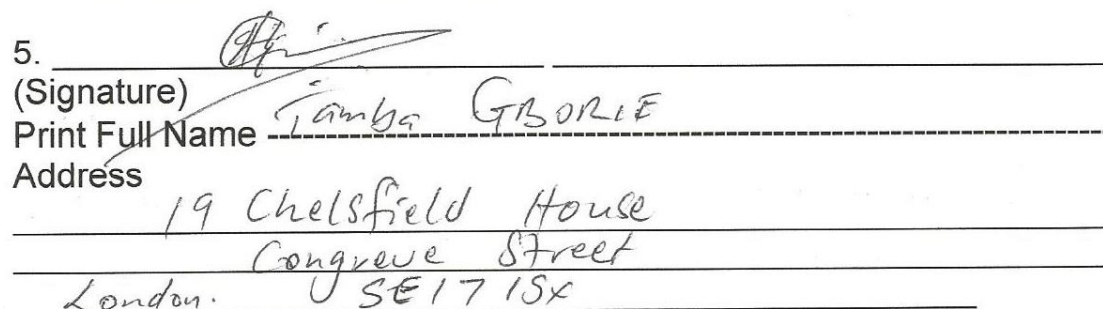 5.
(Signature)
Print Full Name Tamba GBORIE
Address
19 Chelsfield House
Congreve Street
London. SE17 1SX